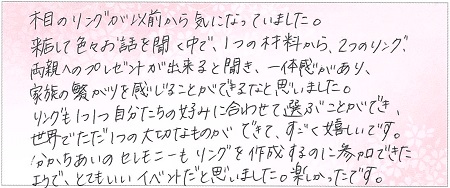 木目のリングが以前から気になっていました。
来店して色々お話を聞く中で、1つの材料から、2つのリング、
両親へのプレゼントが出来ると聞き、一体感があり、
家族の繋がりを感じることができるなと思いました。
リングも1つ1つ自分たちの好みに合わせて選ぶことができ、
世界でただ1つの大切なものが できて、すごく嬉しいです。
分かちあいのセレモニーも リングを作成するのに参加できた
ようで、とてもいいイベントだと思いました。楽しかったです。